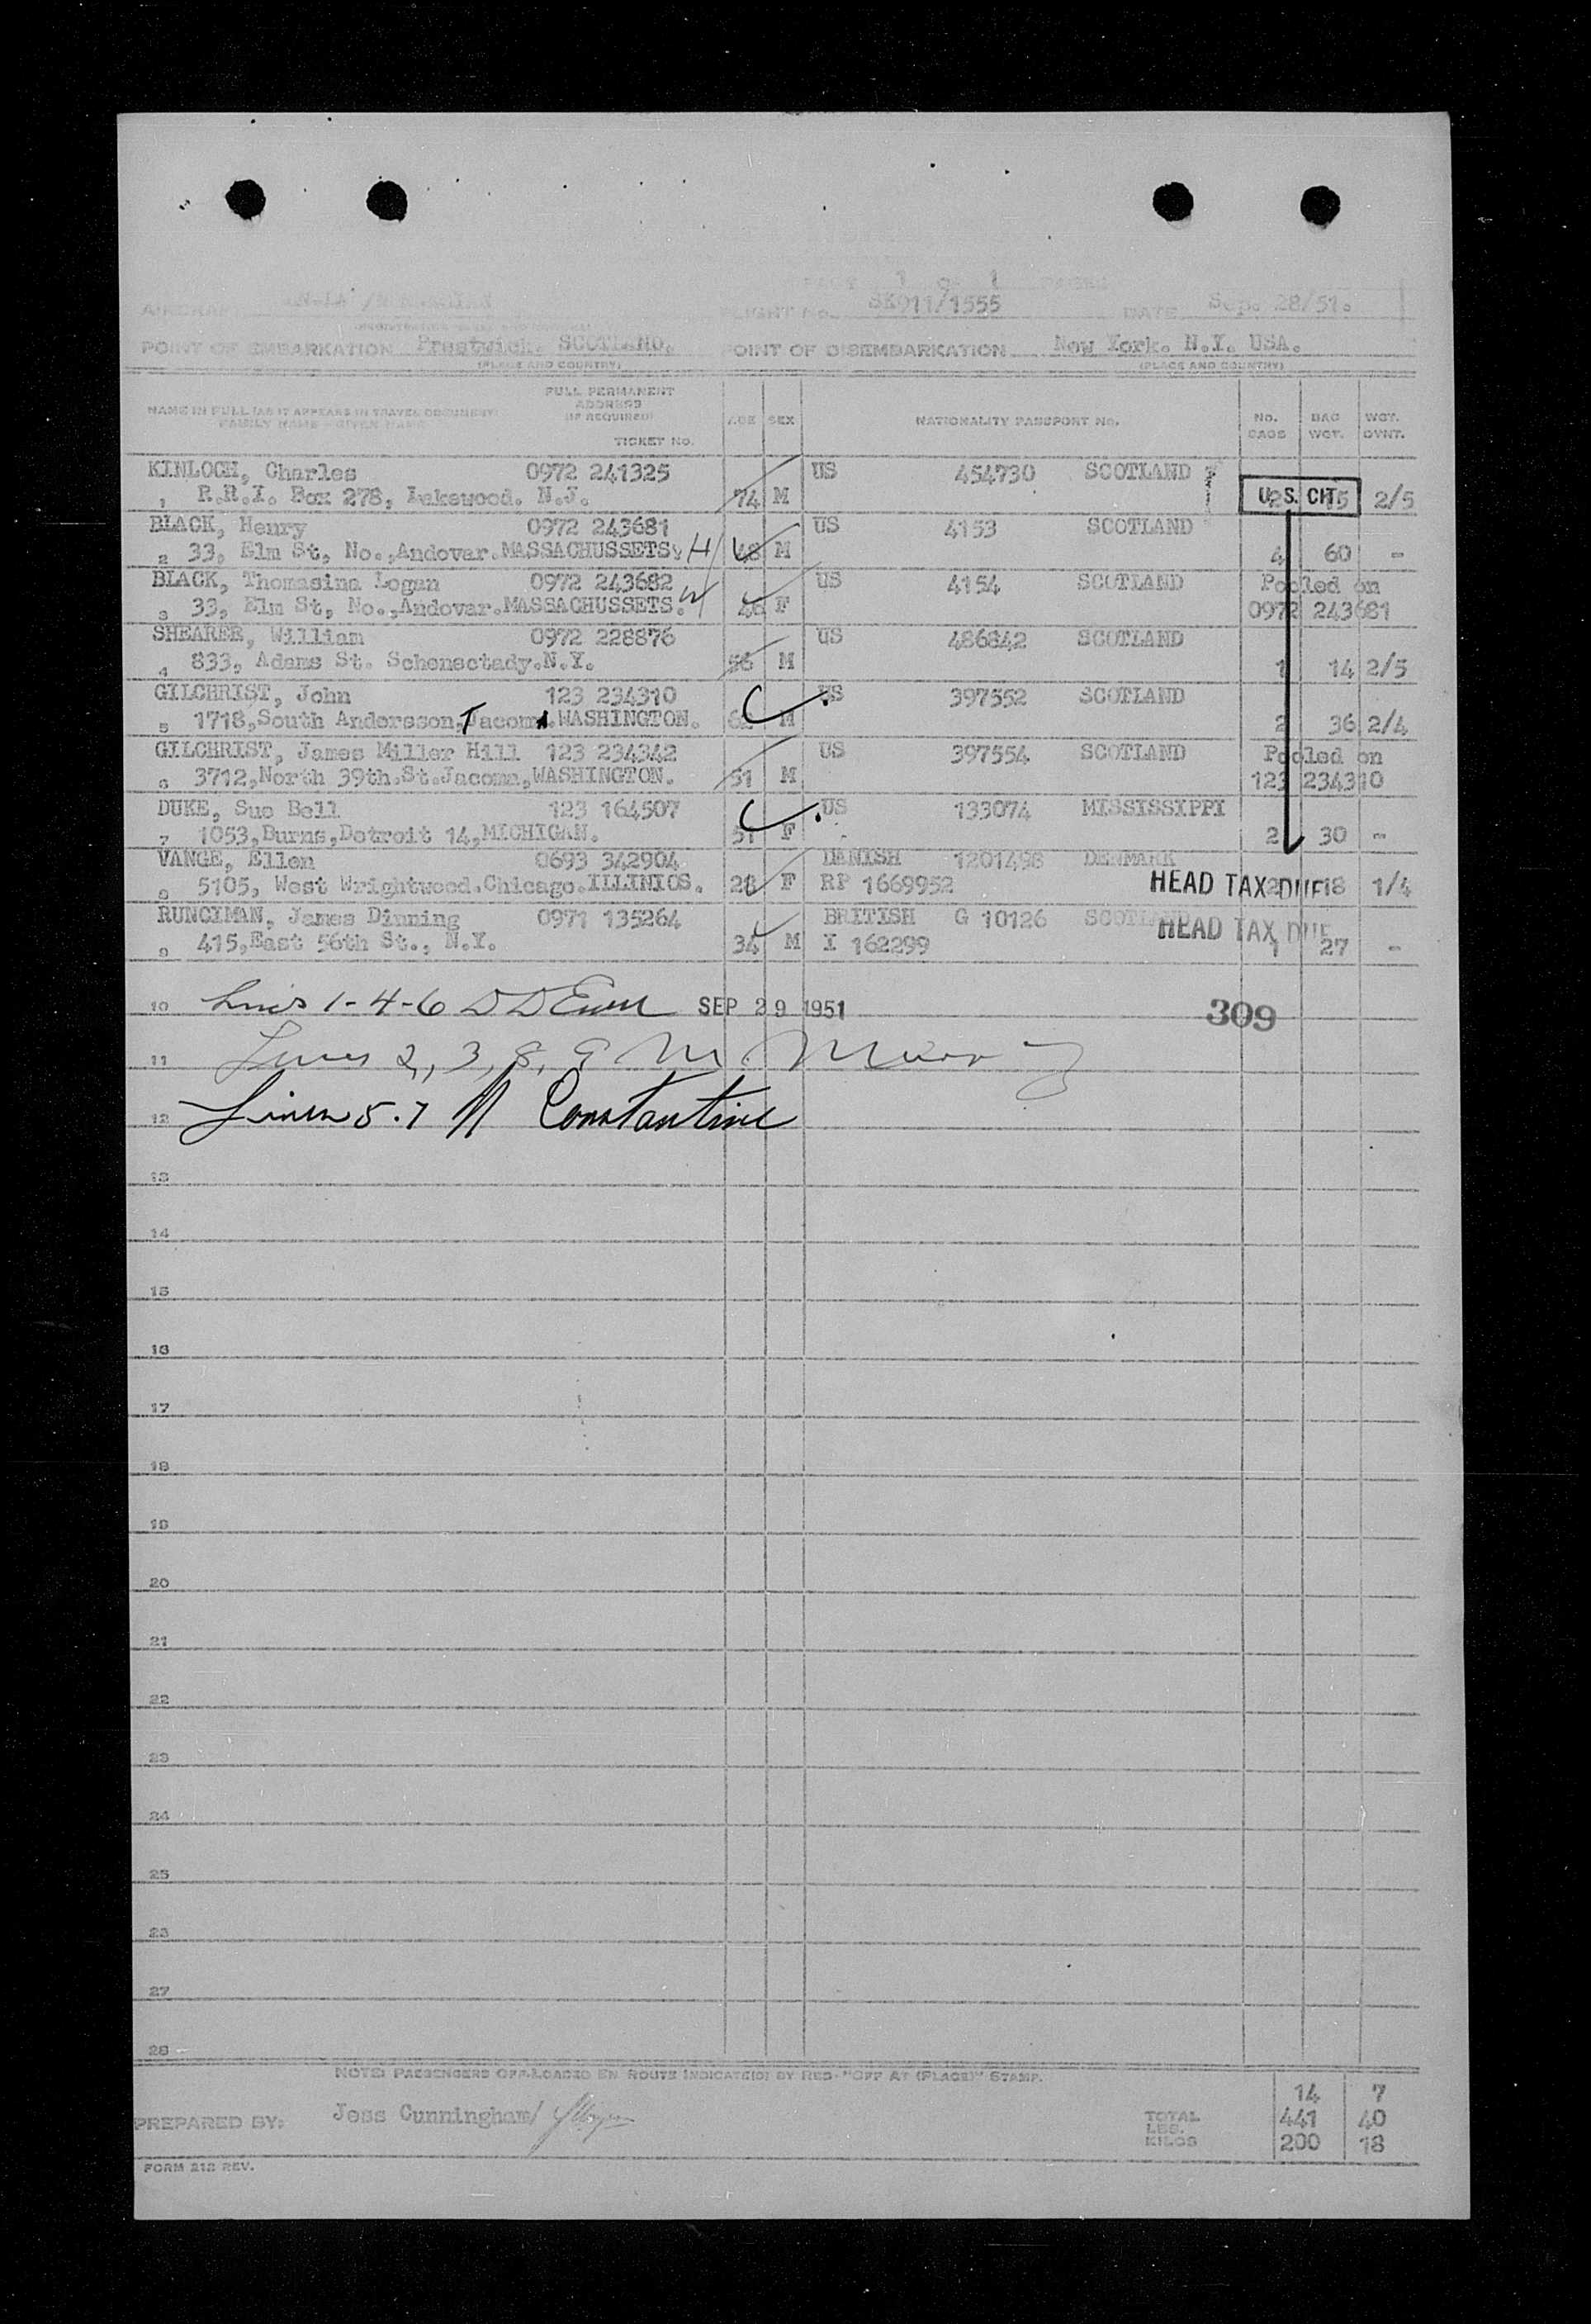 PAGE 1 OF 1 PAGES
AIRCRAFT FLIGHT No. SK911/1555 DATE Sep. 28/51.
POINT OF EMBARKATION Prestwick. SCOTLAND. POINT OF DISEMBARKATION New York. N.Y. USA.
(PLACE AND COUNTRY) (PLACE AND COUNTRY)
NAME IN FULL (AS IT APPEARS IN TRAVEL DOCUMENT) FAMILY NAME - GIVEN NAME FULL PERMANENT ADDRESS (IF REQUIRED) TICKET No. AGE SEX NATIONALITY PASSPORT No. No. BAGS BAG WGT. WGT. OVNT.
KINLOCH, Charles 0972 241325 US 454730 SCOTLAND
1 R.R.I. Box 278, Lakewood. N.J. 74 M U.S. CIT. 2/5
BLACK, Henry 0972 243681 US 4153 SCOTLAND
2 33, Elm St, No.,Andovar.MASSACHUSSETS. H 48 M 4 60 -
BLACK, Thomasina Logan 0972 243682 US 4154 SCOTLAND Pooled on
3 33, Elm St, No.,Andovar.MASSACHUSSETS. W 46 F 0972 243681
SHEARER, William 0972 228876 US 486842 SCOTLAND
4 833, Adams St. Schenectady.N.Y. 56 M 1 14 2/5
GILCHRIST, John 123 234310 C US 397552 SCOTLAND
5 1718,South Andersson,Tacoma.WASHINGTON. 62 M 2 36 2/4
GILCHRIST, James Miller Hill 123 234342 US 397554 SCOTLAND Pooled on
6 3712,North 39th.St.Jacoma,WASHINGTON. 51 M 123 234310
DUKE, Sue Bell 123 164507 C US 133074 MISSISSIPPI
7 1053,Burns,Detroit 14,MICHIGAN. 51 F 2 30 -
VANGE, Ellen 0693 342904 DANISH 1201498 DENMARK
8 5105, West Wrightwood.Chicago.ILLINIOS. 28 F RP 1669952 HEAD TAX DUE 2 18 1/4
RUNCIMAN, James Dinning 0971 135264 BRITISH G 10126 SCOTLAND
9 415,East 56th St., N.Y. 34 M I 162299 HEAD TAX DUE 1 27 -
10 Lines 1-4-6 SEP 29 1951 309
11 Lines 2, 3, 8, 9 M. Murray
12 Lines 5.7 N Constantine
13
14
15
16
17
18
19
20
21
22
23
24
25
26
27
28
NOTE: PASSENGERS OFF-LOADED EN ROUTE INDICATE(D) BY RED "OFF AT (PLACE)" STAMP.
14 7
PREPARED BY: Jess Cunningham/ TOTAL LBS. 441 40
KILOS 200 18
FORM 212 REV.